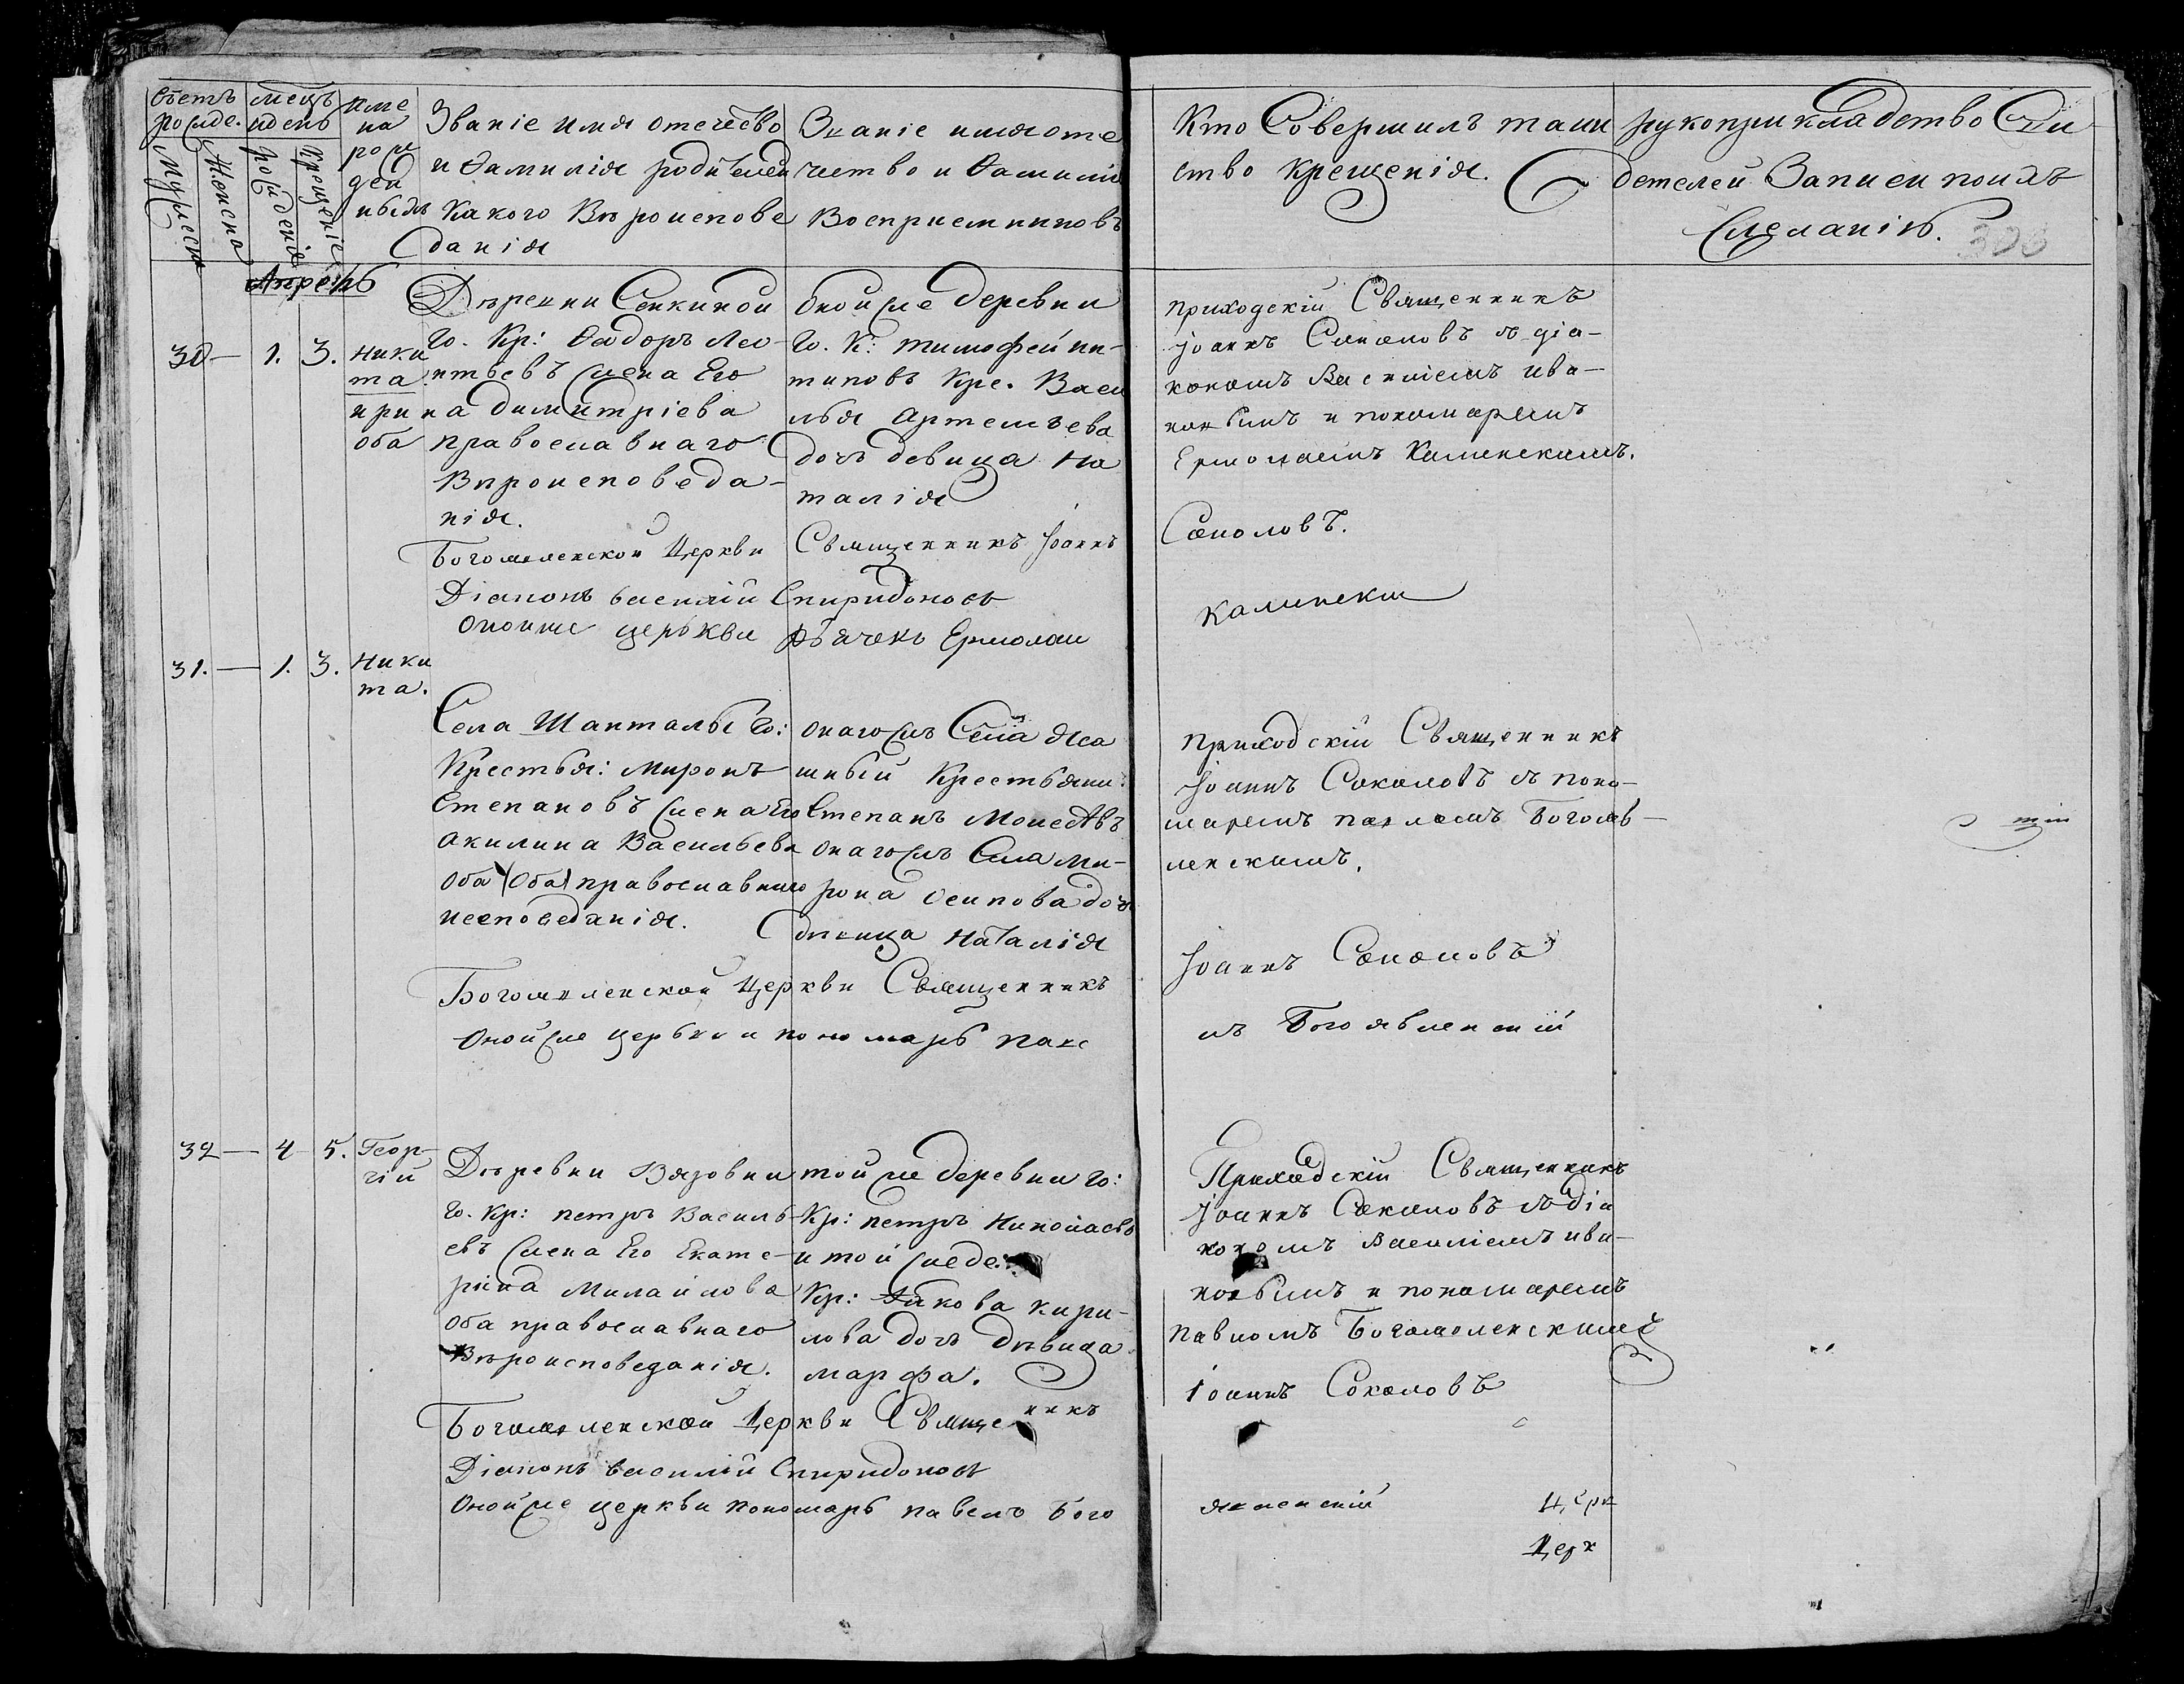 Счетъ
рожде.
Мужеска
Женска
Мецъ
и день
рожденія
Крещенiе
Име
на
рож
ден
ныхъ
Званіе имя отечество
и Фамилія родителей
Какого Вѣроиспове
данія
Званіе имя оте
чество и Фамилія
Воспріемниковъ
Кто Совершилъ таин
ство Крещенія.
рукоприкладство Сви
детелей Записи по желанію.
306
Апрель
30 — 1. 3. Ники
та
Дѣревни Сенкиной
Го. Кр: Феодоръ Лео
нтьевъ жена Его
ирина димитріева
оба православнаго
Вѣроисповеда-
нія.
Оной же деревни
Го. К: тимофей ни-
типовъ Кре. Васи
лья Артемьева
дочь девица На
талія
приходскій Священникъ
Іоаннъ Соколовъ съ діа-
кономъ Василіемъ ива-
новымъ и пономаремъ
Ермолаемъ Калинскимъ.
Богоявленской Церкви Священникъ Іоаннъ Соколовъ.
Діаконъ василій Спиридоновъ
Оной же церькви Дьячекъ Ермолаи Калински
31. — 1. 3. Ники
та.
Села Шанталы Го:
Крестья: Миронъ
Степановъ жена Его
Акилина Васильева
Оба (Оба) православнаго
исповеданія.
онагожъ Села Яса
шный Крестьяни:
Степанъ Моисеевъ
онагожъ Села Ми-
рона Осипова дочь
дѣвица Наталія
Приходскій Священникъ
Іоаннъ Соколовъ съ поно-
маремъ павломъ Богояв-
ленскимъ.
Богоявленской Церкви Священникъ Іоаннъ Соколовъ
Оной же церькви пономарь паве лъ Богоявленскій
32 — 4 5. Геор-
гій
Дѣревни Вязовки
Го. Кр: петръ Василь
евъ жена Его Екате-
рина Михайлова
Оба православнаго
Вѣроисповеданія.
той же деревни Го:
Кр: петръ Николаевъ
и той же де:
Кр: Якова Кири-
лова дочь дѣвица
марфа.
Приходскій Священникъ
Іоаннъ Соколовъ съ діа
кономъ Василіемъ ива-
новымъ и пономаремъ
павломъ Богоявленскимъ
Богоявленской Церкви Священникъ Іоаннъ Соколовъ
Діаконъ василій Спиридоновъ
Оной же церкви пономарь павелъ Богоявленскій
Церк
Церк